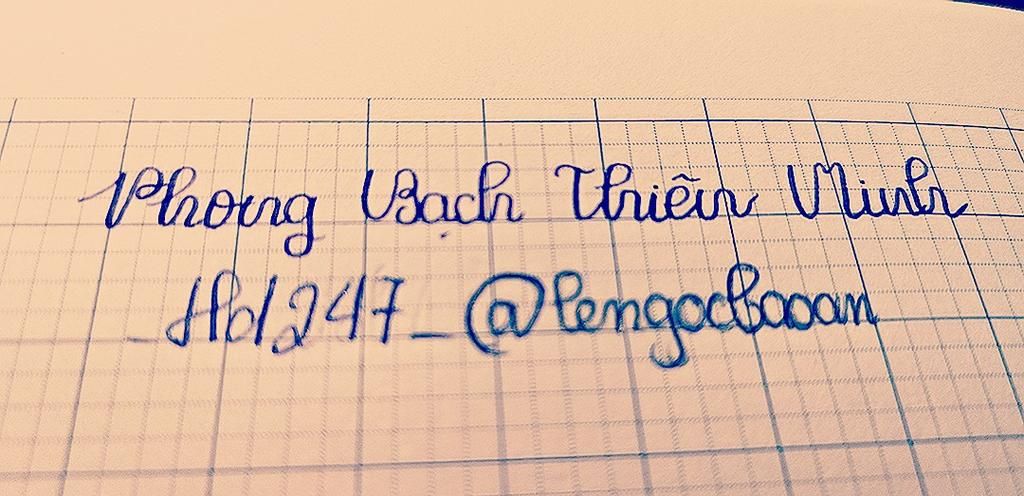 Phong Bạch Thiên Minh
_Hd247_@lengocbaoan